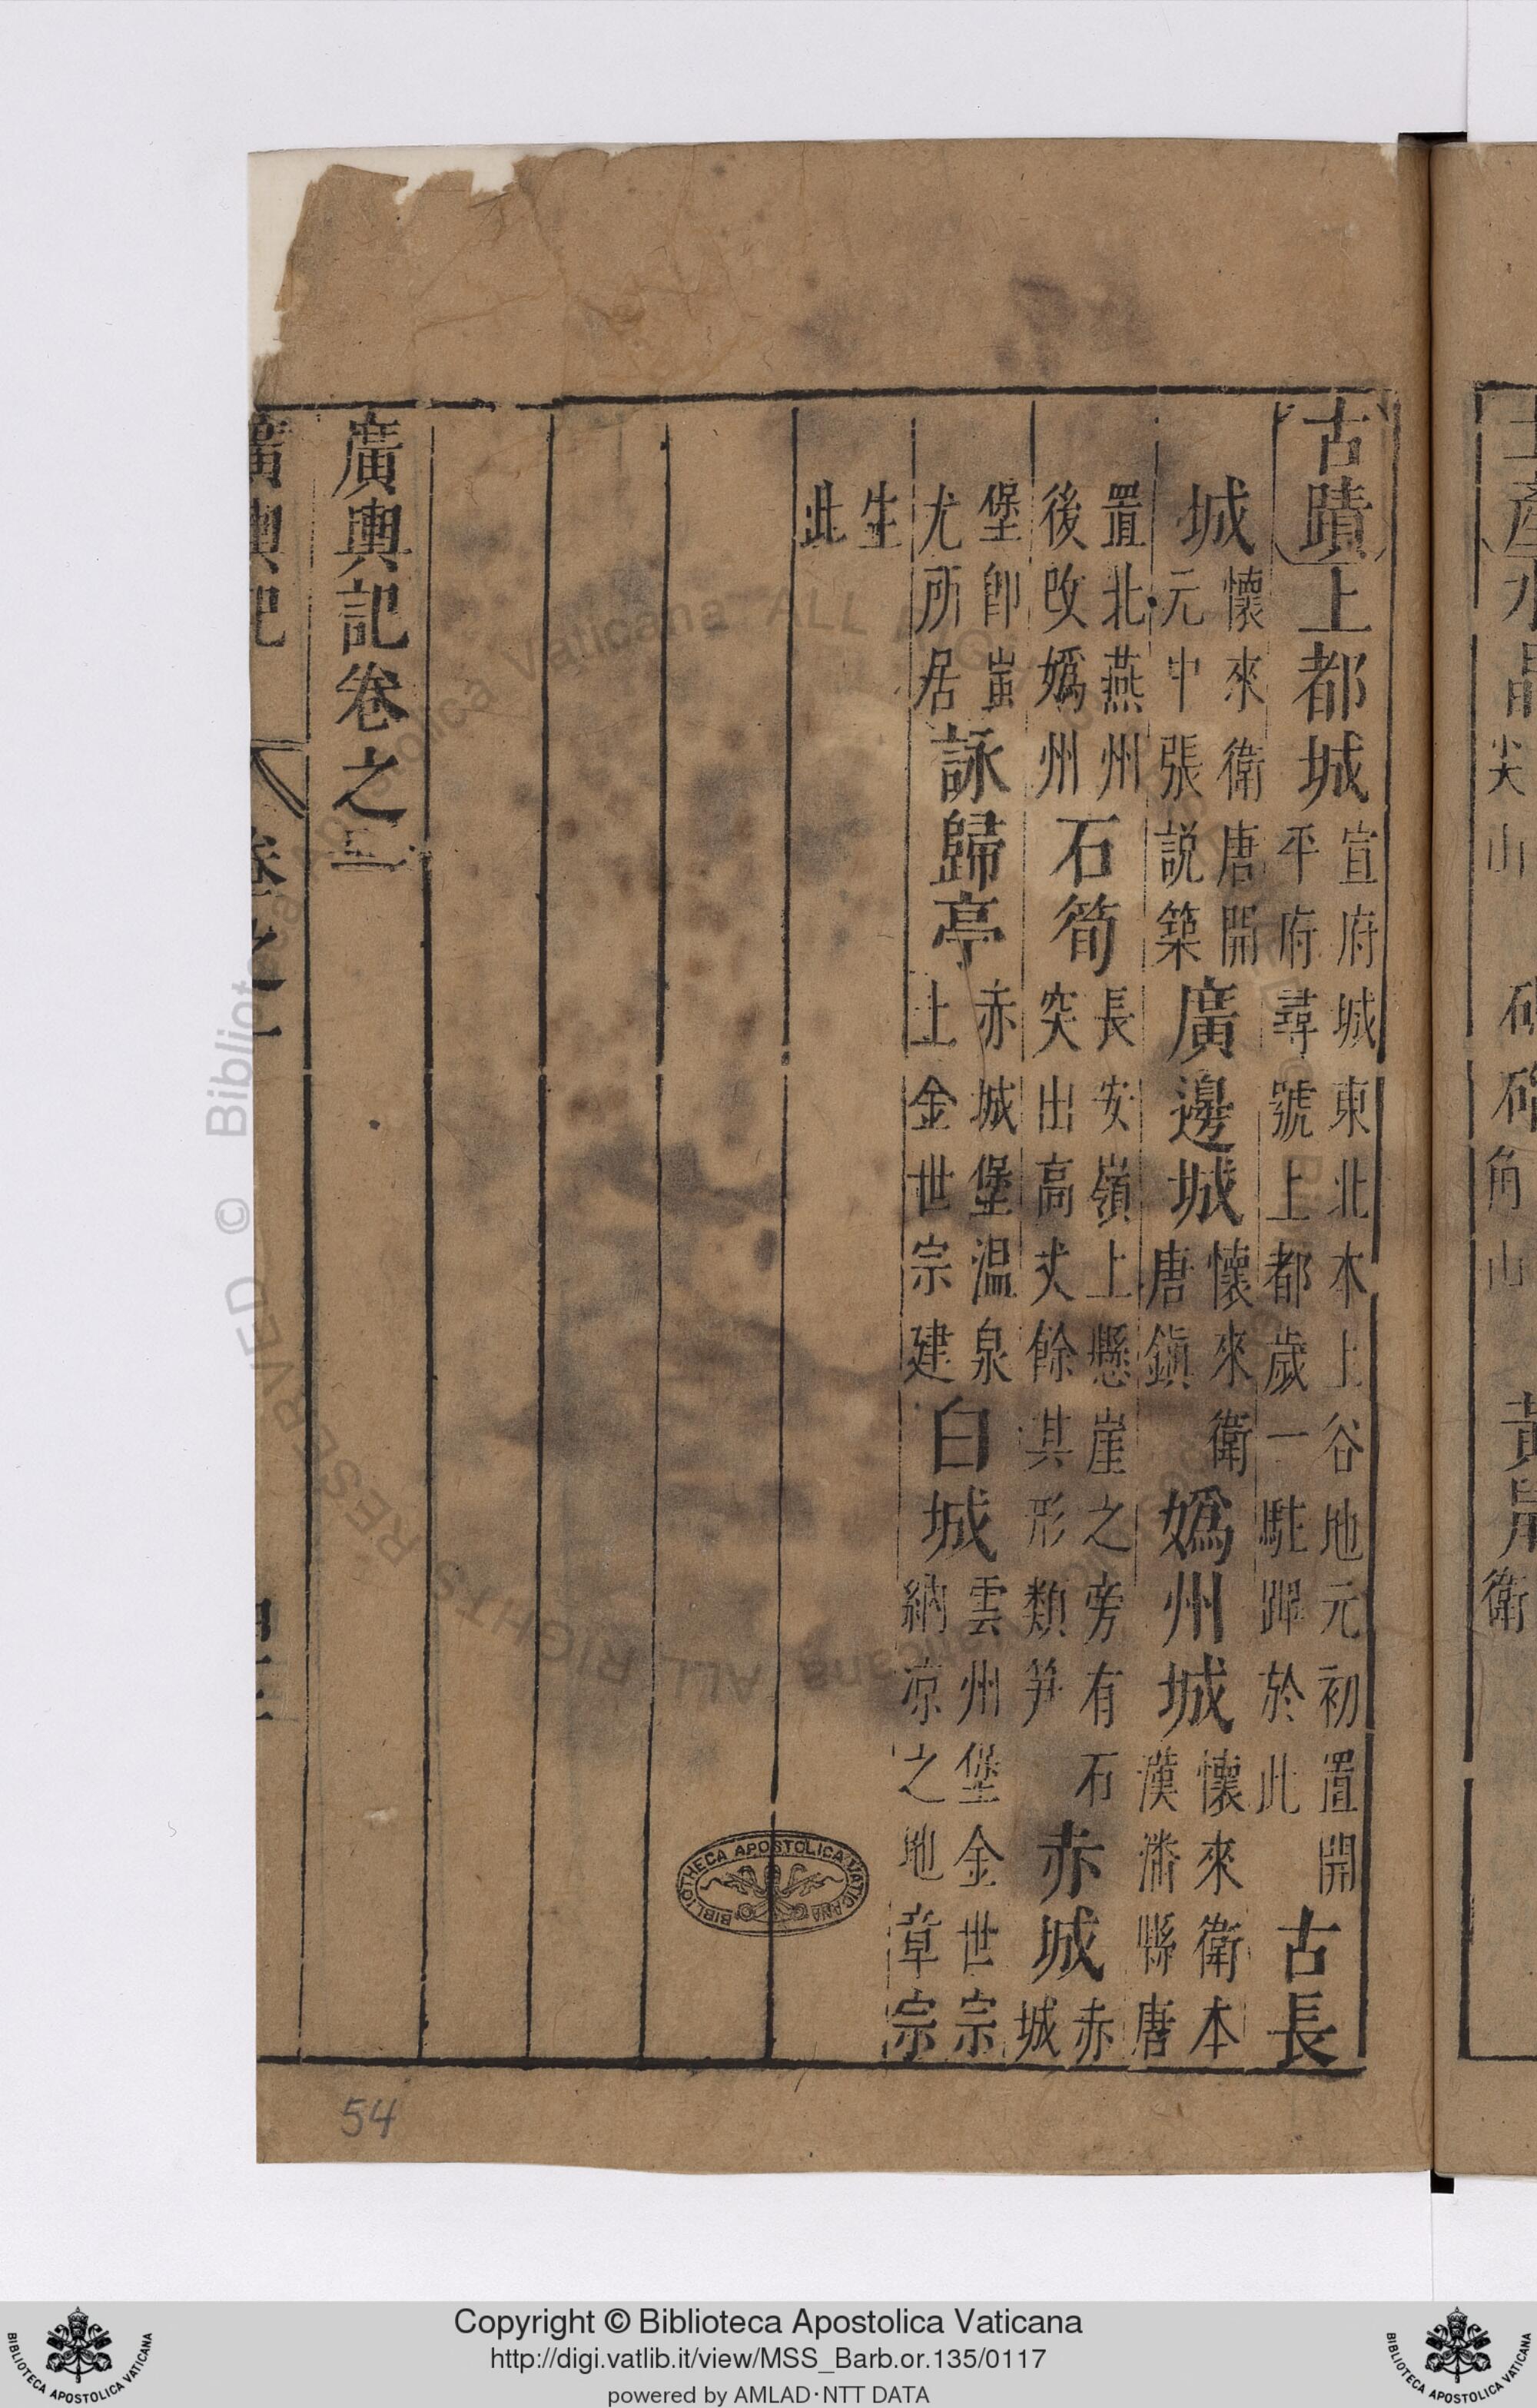 古蹟上都城宣府城東北本上谷地元初置開平府尋號上都歲一駐蹕於此古長
城懷來衛唐開元中張説築廣邊城懷來衛唐鎭嬀州城懷來衛本漢潘縣唐
置北燕州後改嬀州石筍長安嶺上懸崖之旁有石突出高丈餘其形類笋赤城赤城
堡卽蚩尤所居詠歸亭赤城堡温泉上金世宗建白城雲州堡金世宗納凉之地章宗
生此
廣輿記卷之一
廣輿記 卷之一
BIBLIOTHECA APOSTOLICA VATICANA
54
© Biblioteca Apostolica Vaticana ALL RIGHTS RESERVED
Copyright © Biblioteca Apostolica Vaticana
http://digi.vatlib.it/view/MSS_Barb.or.135/0117
powered by AMLAD·NTT DATA
BIBLIOTECA APOSTOLICA VATICANA
BIBLIOTECA APOSTOLICA VATICANA